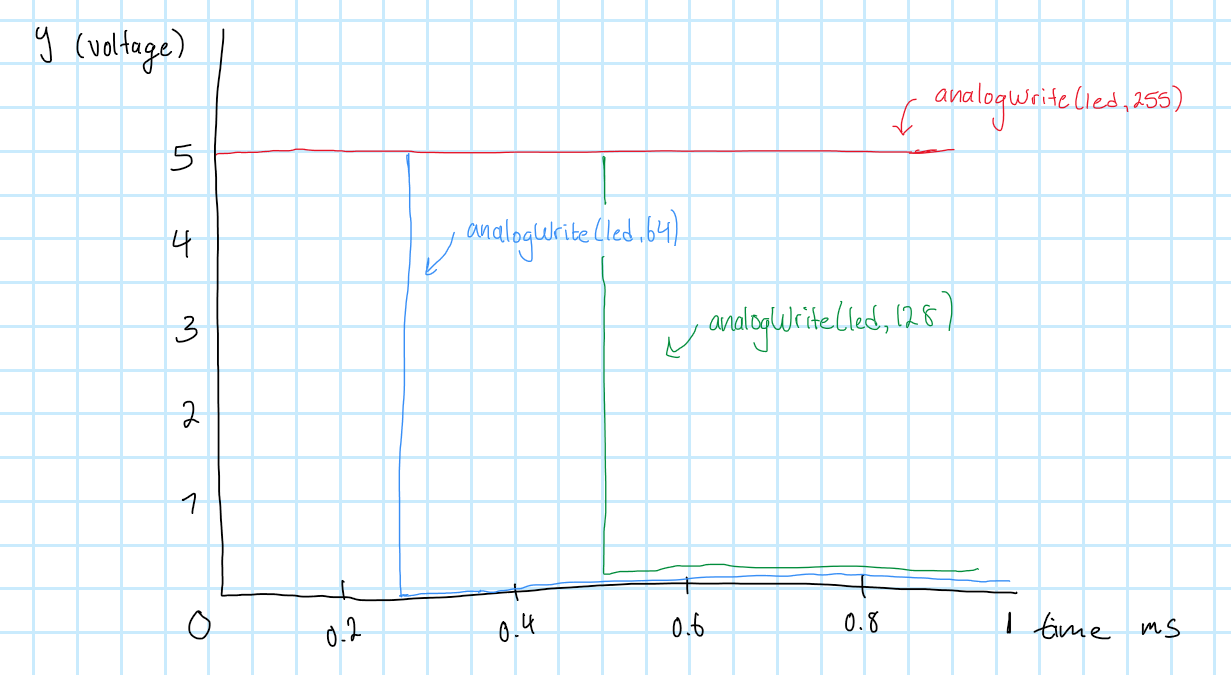 y (voltage)
analogWrite(led,255)
5
analogWrite(led,64)
4
analogWrite(led,128)
3
2
1
0
0.2
0.4
0.6
0.8
1
time ms